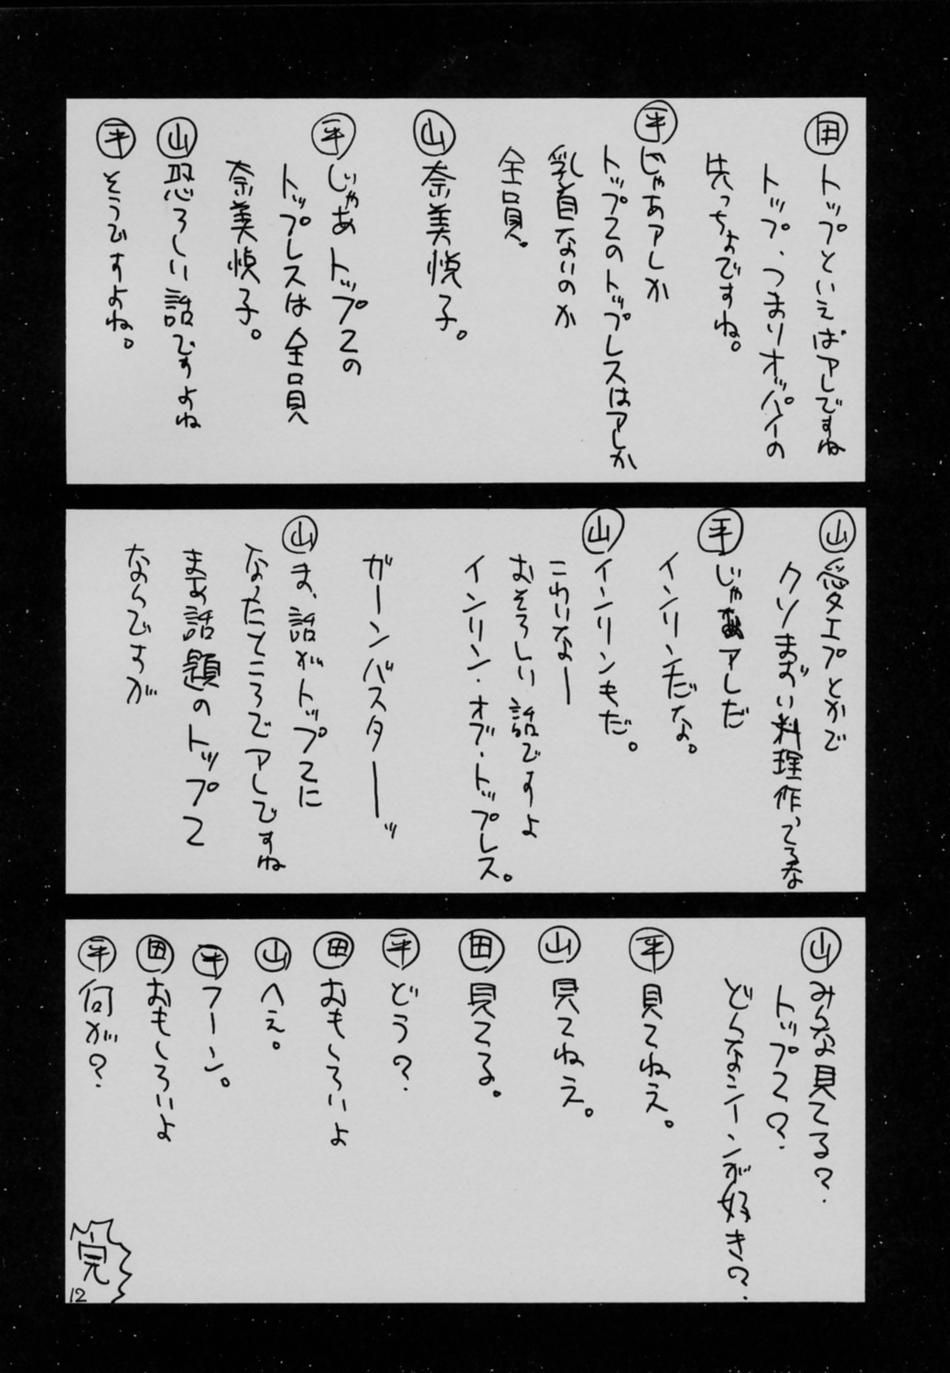 田 トップといえばアレですね
トップ、つまりオッパイの
先っちょですね。
平 じゃあアレか
トップ2のトップレスはアレか
乳首ないのか
全員。
山 奈美悦子。
平 じゃあトップ2の
トップレスは全員
奈美悦子。
山 恐ろしい話ですよね
平 そうですよね。
山 愛エプとかで
クソまずい料理作ってるな
平 じゃあアレだ
インリンだな。
山 インリンもだ。
こわいなー
おそろしい話ですよ
インリン・オブ・トップレス。
ガーンバスターーッ
山 ま、話がトップ2に
なったところでアレですね
まあ話題のトップ2
なんですが
山 みんな見てる?
トップ2?
どんなシーンが好き?
平 見てねえ。
山 見てねえ。
田 見てる。
平 どう?
田 おもしろいよ
山 へえ。
平 フーン。
田 おもしろいよ
平 何が?
完
12